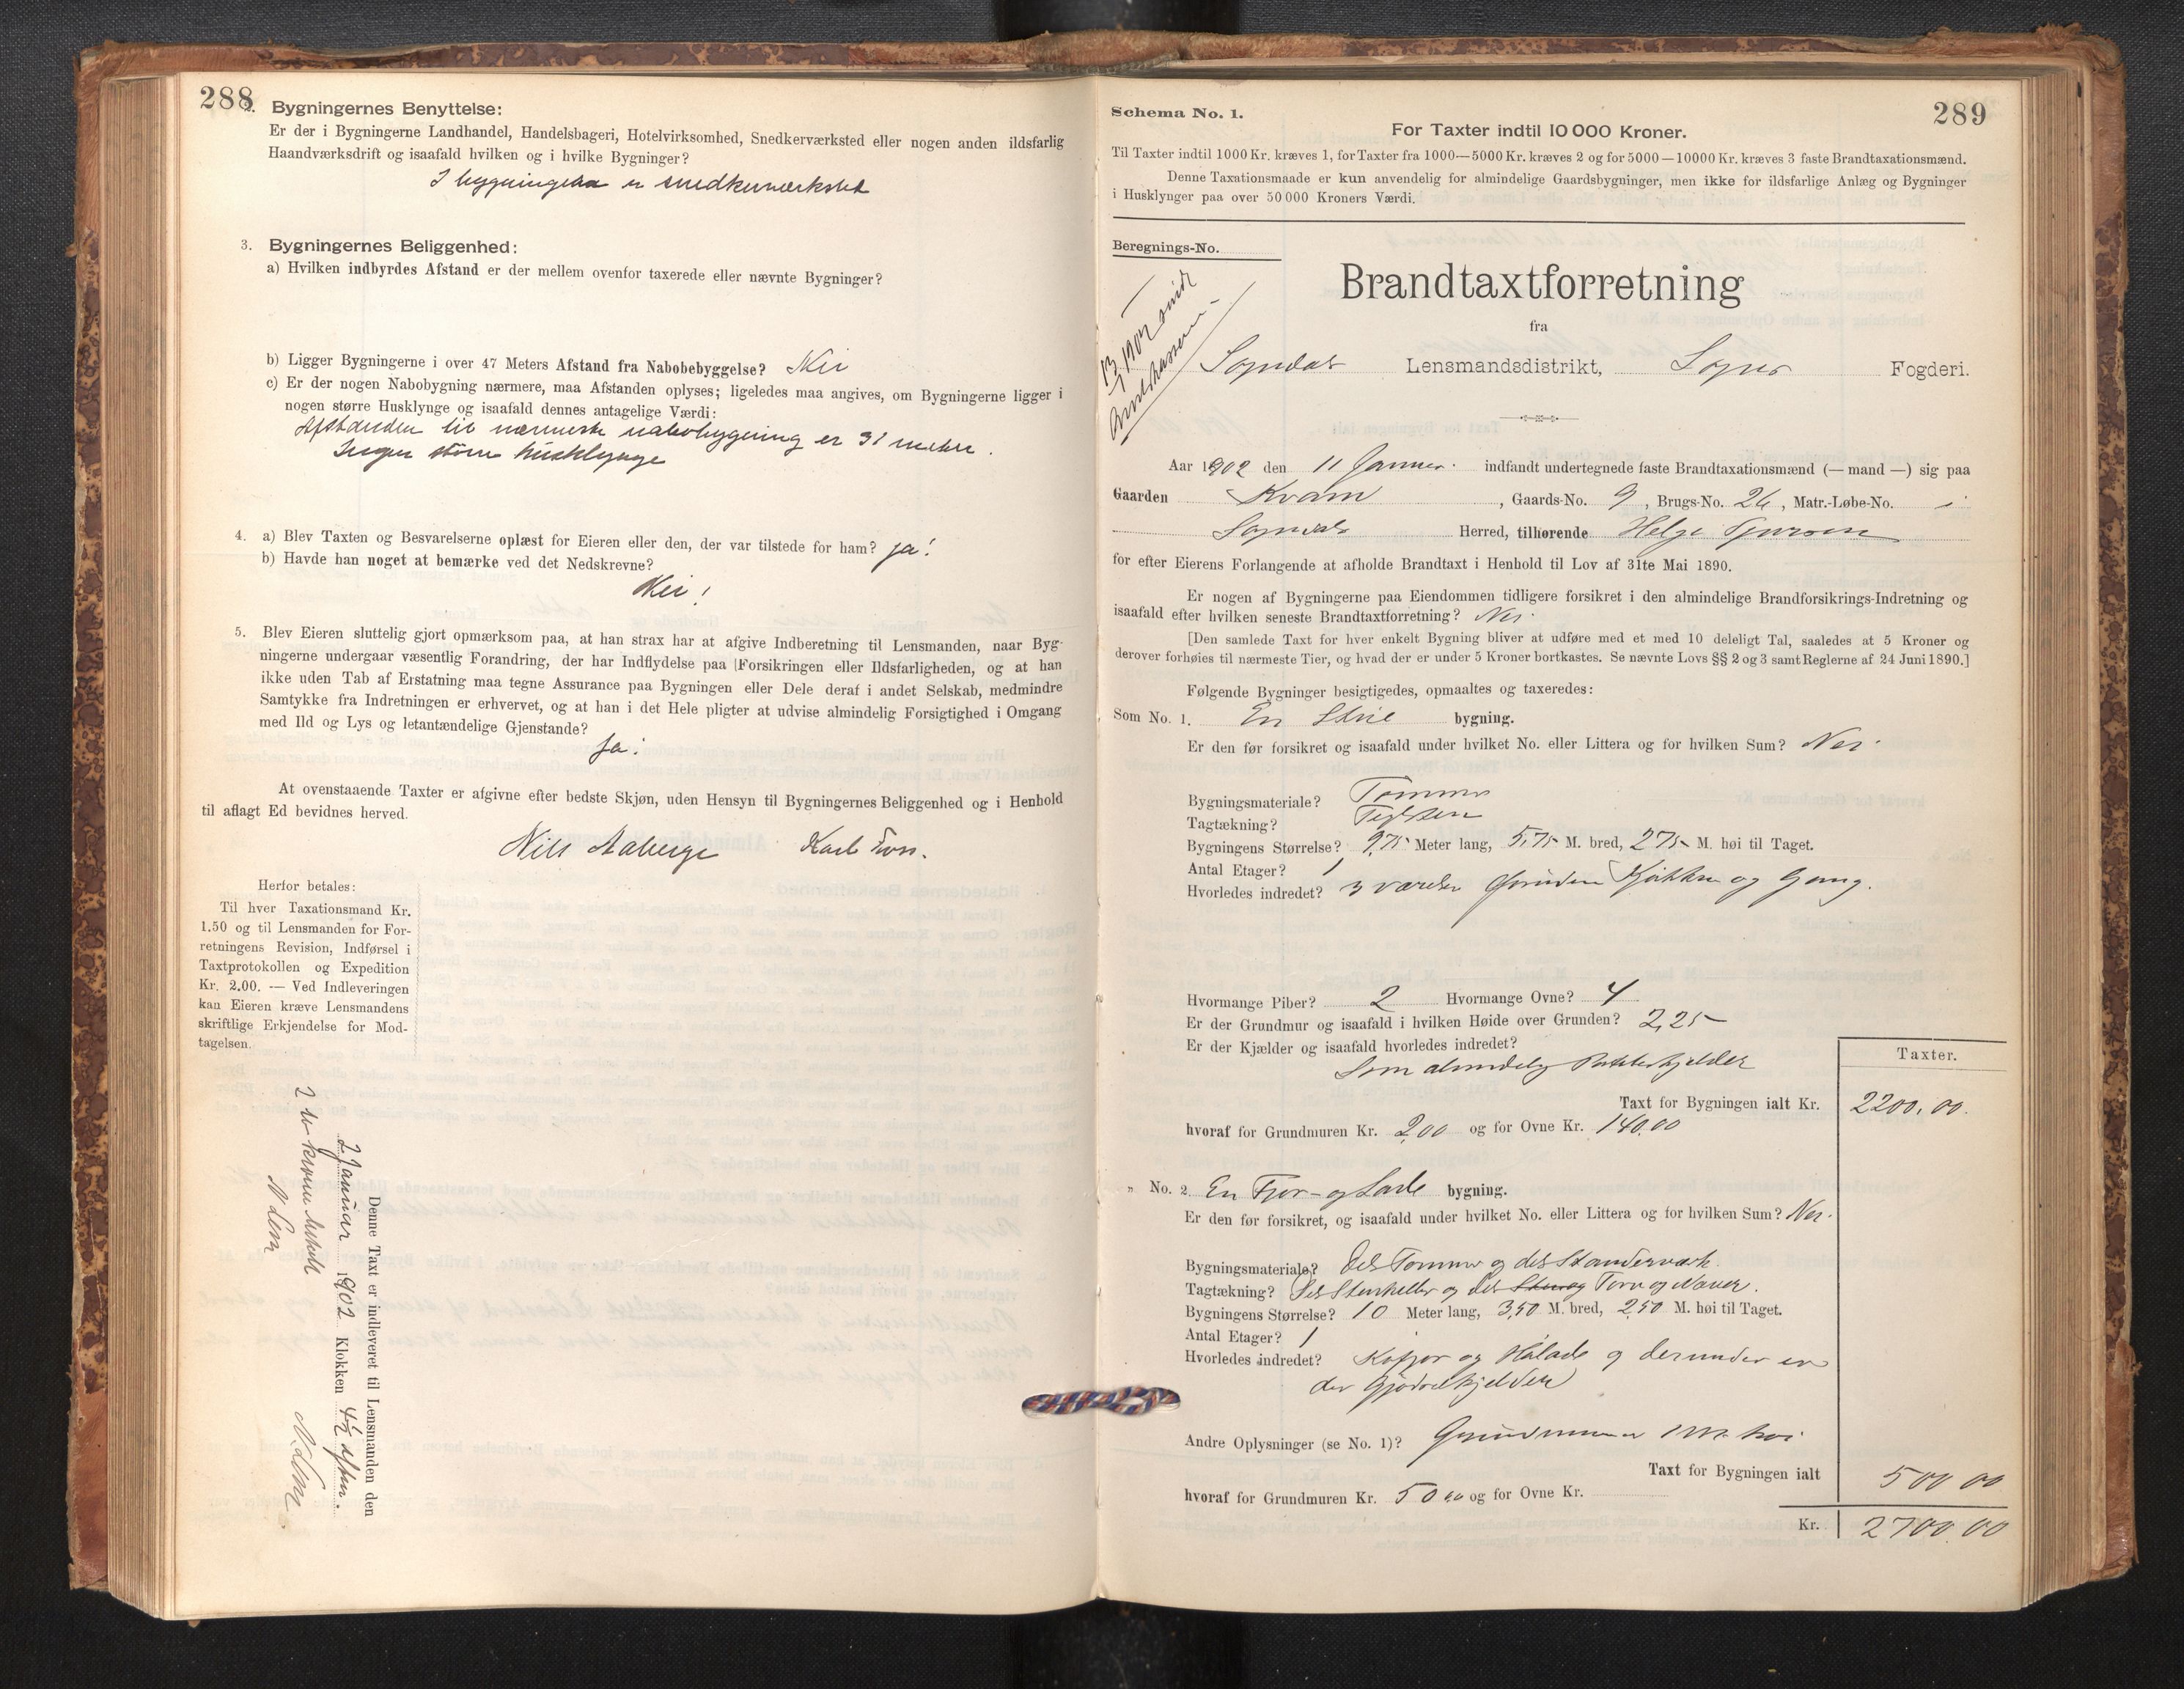 288
2. Bygningernes Benyttelse:
Er der i Bygningerne Landhandel, Handelsbageri, Hotelvirksomhed, Snedkerværksted eller nogen anden ildsfarlig
Haandværksdrift og isaafald hvilken og i hvilke Bygninger?
I bygningen er snedkerværksted
3. Bygningernes Beliggenhed:
a) Hvilken indbyrdes Afstand er der mellem ovenfor taxerede eller nævnte Bygninger?
b) Ligger Bygningerne i over 47 Meters Afstand fra Nabobebyggelse? Nei
c) Er der nogen Nabobygning nærmere, maa Afstanden oplyses; ligeledes maa angives, om Bygningerne ligger i
nogen større Husklynge og isaafald dennes antagelige Værdi:
Afstanden til nærmeste nabobygning er 31 meter.
Ingen større husklynge
4. a) Blev Taxten og Besvarelserne oplæst for Eieren eller den, der var tilstede for ham? ja!
b) Havde han noget at bemærke ved det Nedskrevne?
Nei!
5. Blev Eieren sluttelig gjort opmærksom paa, at han strax har at afgive Indberetning til Lensmanden, naar Byg-
ningerne undergaar væsentlig Forandring, der har Indflydelse paa [Forsikringen eller Ildsfarligheden, og at han
ikke uden Tab af Erstatning maa tegne Assurance paa Bygningen eller Dele deraf i andet Selskab, medmindre
Samtykke fra Indretningen er erhvervet, og at han i det Hele pligter at udvise almindelig Forsigtighed i Omgang
med Ild og Lys og letantændelige Gjenstande?
Ja!
At ovenstaaende Taxter er afgivne efter bedste Skjøn, uden Hensyn til Bygningernes Beliggenhed og i Henhold
til aflagt Ed bevidnes herved.
Nils Aaberge Karl
Herfor betales:
Til hver Taxationsmand Kr.
1.50 og til Lensmanden for For-
retningens Revision, Indførsel i
Taxtprotokollen og Expedition
Kr. 2.00. — Ved Indleveringen
kan Eieren kræve Lensmandens
skriftlige Erkjendelse for Mod-
tagelsen.
Denne Taxt er indleveret til Lensmanden den
2 Januar 1902 Klokken 4½ eften.
2 to kroner
N Lem
289
Schema No. 1.
For Taxter indtil 10 000 Kroner.
Til Taxter indtil 1000 Kr. kræves 1, for Taxter fra 1000—5000 Kr. kræves 2 og for 5000—10000 Kr. kræves 3 faste Brandtaxationsmænd.
Denne Taxationsmaade er kun anvendelig for almindelige Gaardsbygninger, men ikke for ildsfarlige Anlæg og Bygninger
i Husklynger paa over 50 000 Kroners Værdi.
Beregnings-No.
Brandtaxtforretning
fra
Sogndal Lensmandsdistrikt, Sogns Fogderi.
Aar 1902 den 11 Januar. indfandt undertegnede faste Brandtaxationsmænd (— mand —) sig paa
Gaarden Kvam, Gaards-No. 9, Brugs-No. 26, Matr.-Løbe-No. i
Sogndals Herred, tilhørende Helge
for efter Eierens Forlangende at afholde Brandtaxt i Henhold til Lov af 31te Mai 1890.
Er nogen af Bygningerne paa Eiendommen tidligere forsikret i den almindelige Brandforsikrings-Indretning og
isaafald efter hvilken seneste Brandtaxtforretning? Nei
[Den samlede Taxt for hver enkelt Bygning bliver at udføre med et med 10 deleligt Tal, saaledes at 5 Kroner og
derover forhøies til nærmeste Tier, og hvad der er under 5 Kroner bortkastes. Se nævnte Lovs §§ 2 og 3 samt Reglerne af 24 Juni 1890.]
Følgende Bygninger besigtigedes, opmaaltes og taxeredes:
Som No. 1. En bygning.
Er den før forsikret og isaafald under hvilket No. eller Littera og for hvilken Sum? Nei.
Bygningsmateriale? Tømmer
Tagtækning? Teglsten
Bygningens Størrelse? 9,75 Meter lang, 5,75 M. bred, 2,75 M. høi til Taget.
Antal Etager? 1
Hvorledes indredet? 3 værelser foruden Kjøkken og Gang.
Hvormange Piber? 2 Hvormange Ovne? 4
Er der Grundmur og isaafald i hvilken Høide over Grunden? 2,25
Er der Kjælder og isaafald hvorledes indredet?
Som almindelig Potetkjelder
Taxter.
Taxt for Bygningen ialt Kr. 2200,00.
hvoraf for Grundmuren Kr. 200 og for Ovne Kr. 140,00
„ No. 2. En Fjør- og Lade bygning.
Er den før forsikret, og isaafald under hvilket No. eller Littera og for hvilken Sum? Nei.
Bygningsmateriale? Dels Tømmer og dels Standerværk.
Tagtækning? Dels Stenheller og dels Torv og Næver.
Bygningens Størrelse? 10 Meter lang, 3,50 M. bred, 2,50 M. høi til Taget.
Antal Etager? 1
Hvorledes indredet? Kofjør og Hølade og derunder er
der Gjødselkjelder
Andre Oplysninger (se No. 1)? Grundmuren 1 M. høi
Taxt for Bygningen ialt 500 00
hvoraf for Grundmuren Kr. 50 00 og for Ovne Kr.
Kr. 2700.00